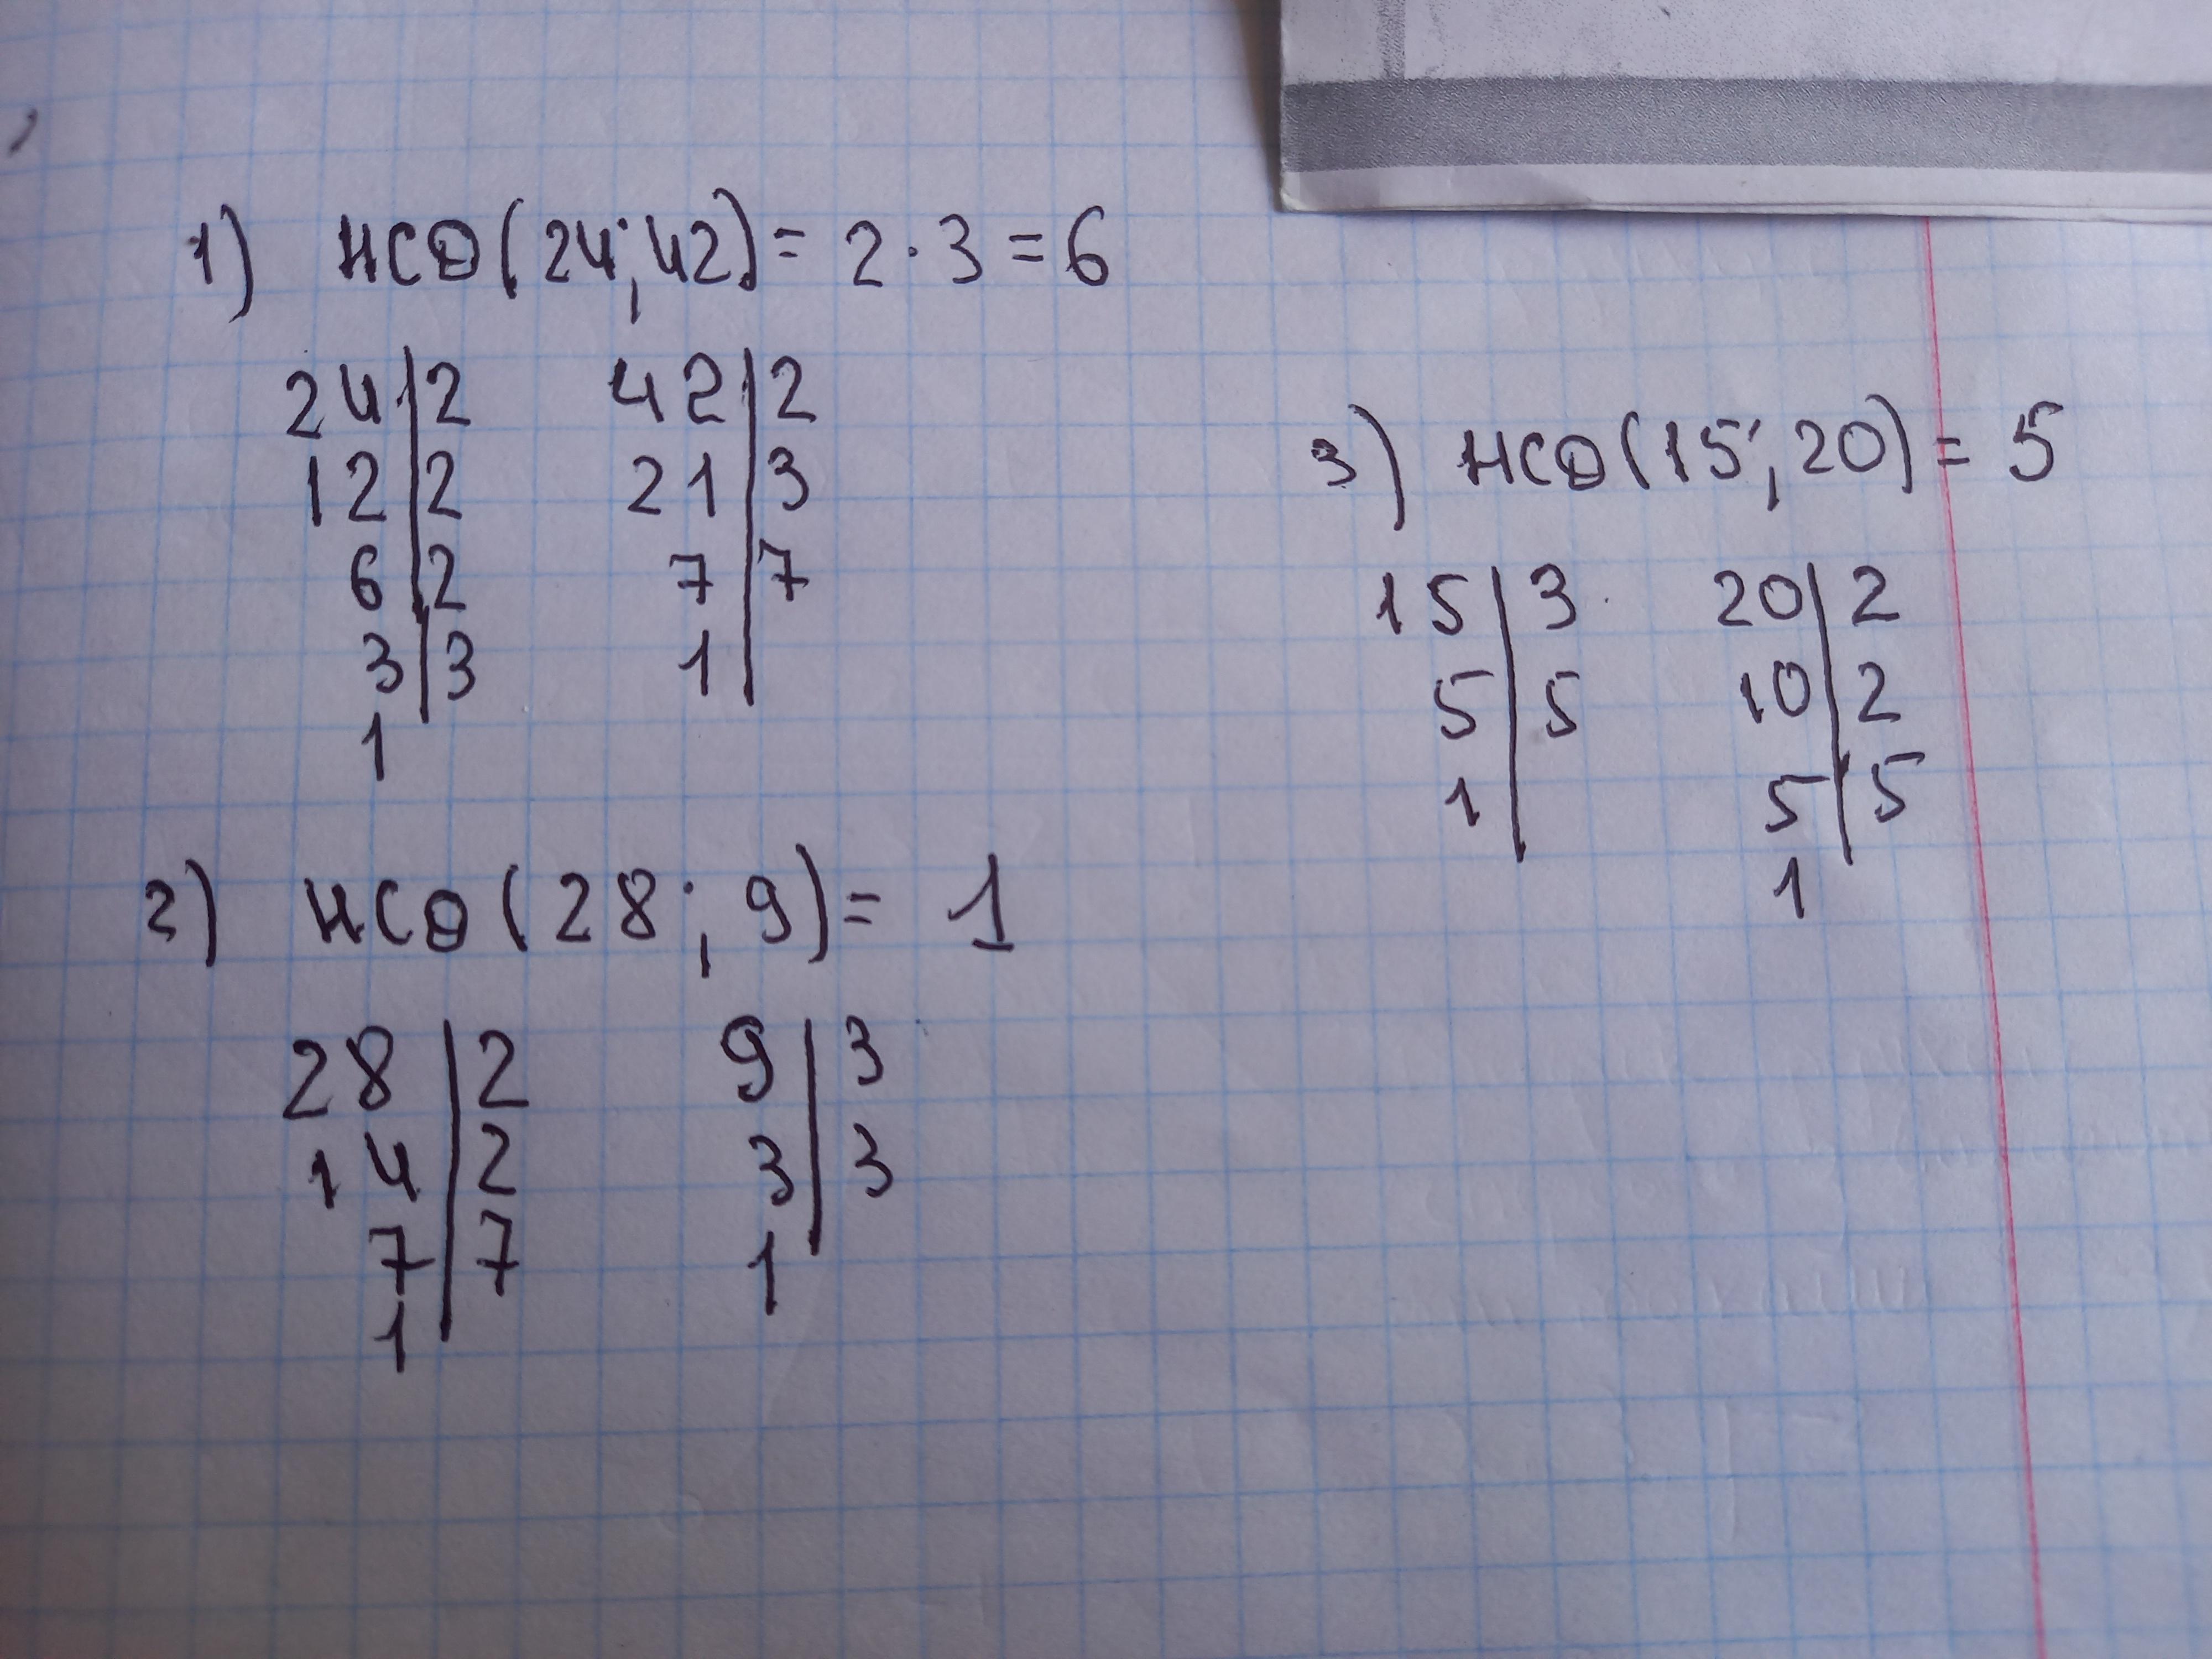 1) НСД(24; 42) = 2 · 3 = 6
24 | 2 42 | 2
12 | 2 21 | 3
6 | 2 7 | 7
3 | 3 1 |
1
2) НСД(28; 9) = 1
28 | 2 9 | 3
14 | 2 3 | 3
7 | 7 1
1
3) НСД(15; 20) = 5
15 | 3 20 | 2
5 | 5 10 | 2
1 | 5 | 5
1